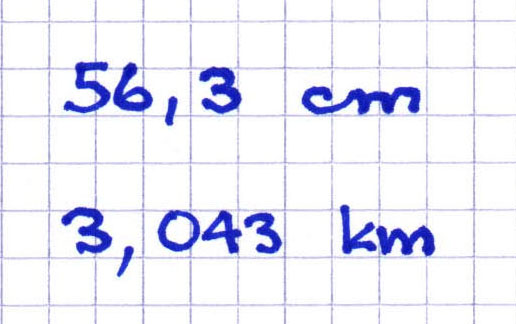 56,3 cm
3,043 km